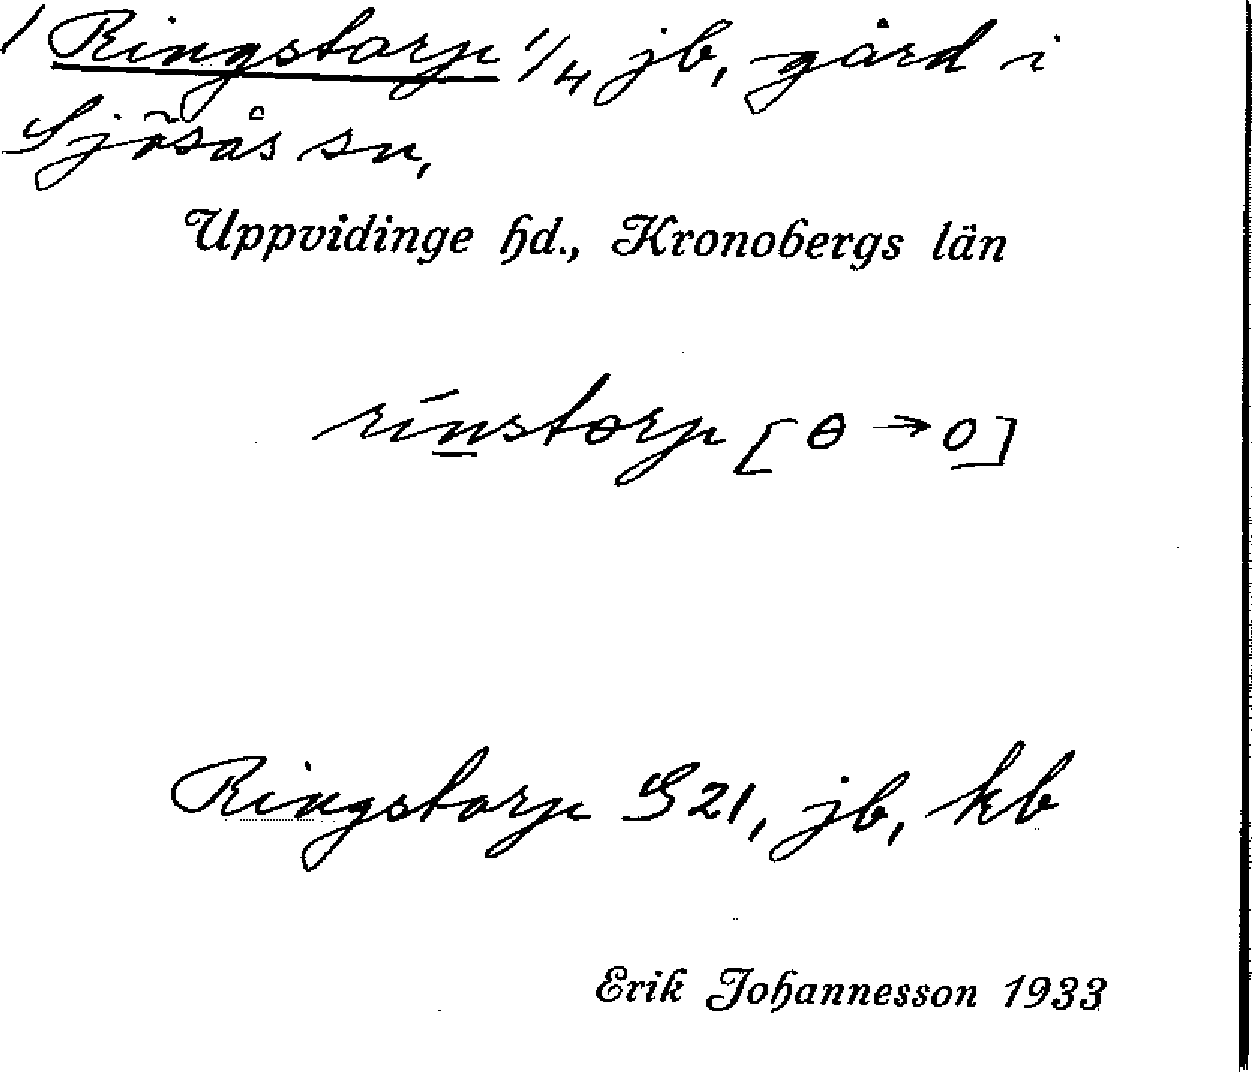 / Ringstorp 1/4 jb, gård i
Sjösås sn,
Uppvidinge hd., Kronobergs län
rínstɵrp [ɵ → o]
Ringstorp S21, jb, kb
Erik Johannesson 1933